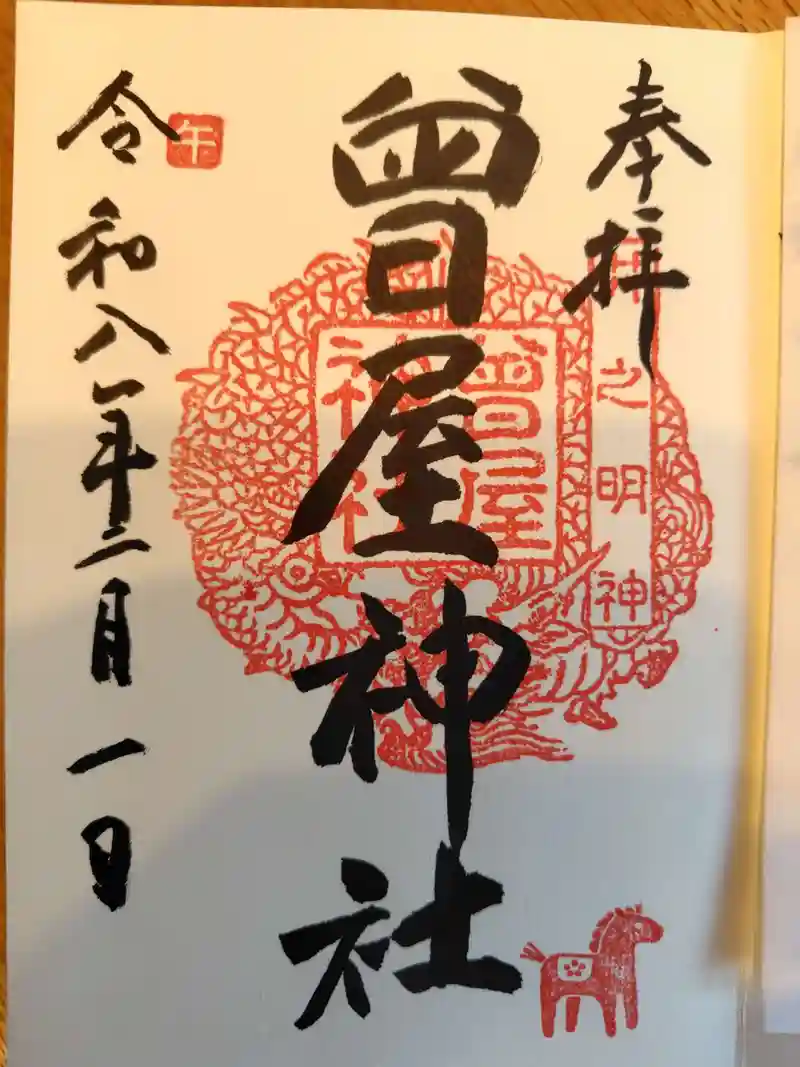 奉拝
井之明神
曾屋神社
曾屋
神社
午
令和八年二月一日